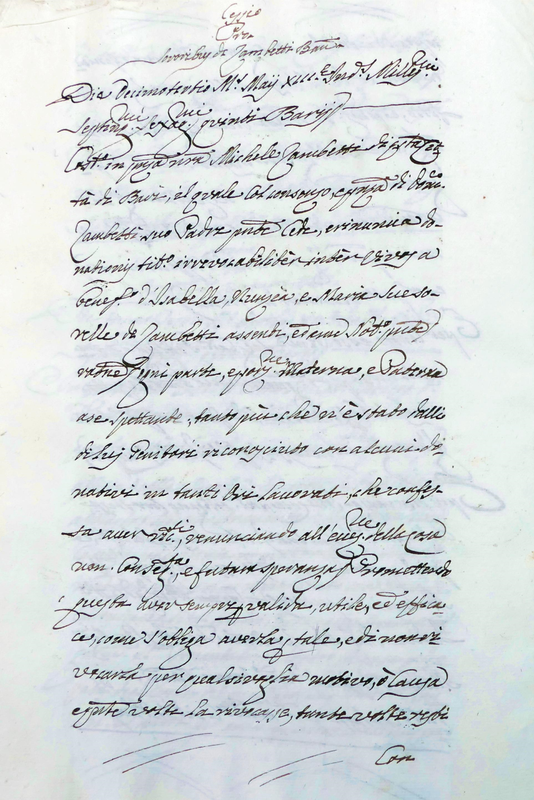 Cessio
Pro
Sororibus de Zambetti Bari
Die Decimotertio Ms. Maij XIII.e Ind.s Mill.mo
Septing.mo Sexag.mo quinto Barij
Cost.o in pnza nra Michele Zambetti di qsta Cit
tà di Bari, il quale col consenzo, e pnza di Dom.co
Zambetti suo Padre pnte Cede, e rinuncia do
nationis tit.o irrevocabiliter inter vivos a
benef.o d'Isabella, e Maria sue so
relle de Zambetti assenti, et me Not.o pnte
ogni parte, e Materna, e Paterna
a se spettante, tanto più che n'è stato dalli
di lui Genitori riconosciuto con alcuni do
nativi in tanti Ori lavorati, che confes
sa aver, renunciando all' della cosa
non, e futura speranza Promettendo
questa aver sempre valida, utile, ed effica
ce, come s'obliga averla tale, e di non ri
vocarla per qualsivoglia motivo, ò Causa
e qnte volte la rivocasse, tante volte resti
Con